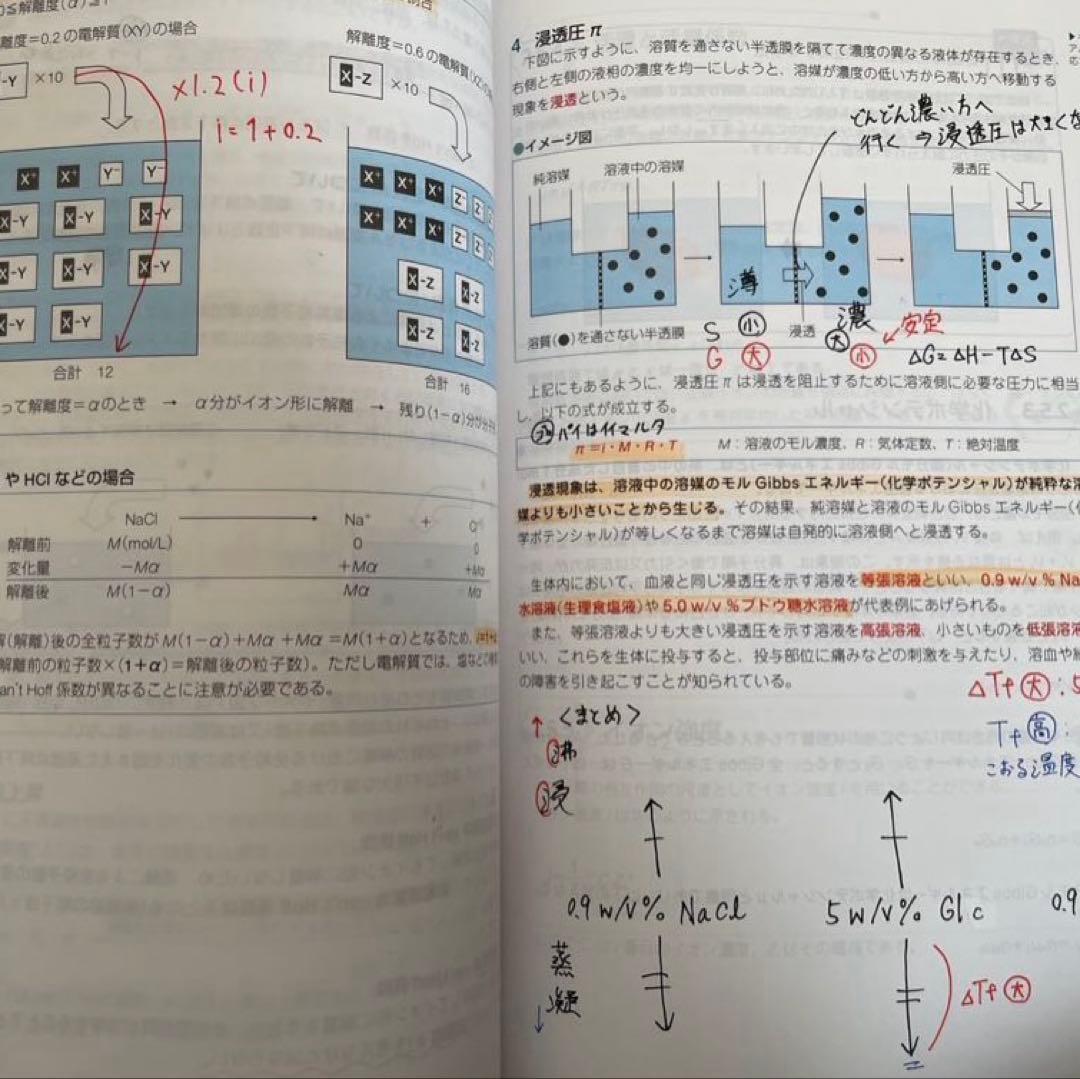 ≦解離度(α)≦1
離度=0.2の電解質(XY)の場合
-Y ×10
×1.2(i)
i=1+0.2
X⁺ X⁺ Y⁻ Y⁻
X-Y X-Y X-Y
X-Y X-Y X-Y
X-Y X-Y
合計 12
解離度=0.6の電解質(XZ)の
X-Z ×10
X⁺ X⁺ X⁺ Z⁻ Z Z
X⁺ X⁺ X⁺ Z⁻ Z⁻ Z
X-Z X-Z
X-Z X-Z
合計 16
って解離度=αのとき → α分がイオン形に解離 → 残り(1-α)分が分子
やHClなどの場合
NaCl Na⁺ + Cl⁻
解離前 M(mol/L) 0 0
変化量 -Mα +Mα +Mα
解離後 M(1-α) Mα Mα
解(解離)後の全粒子数がM(1-α)+Mα+Mα=M(1+α)となるため、
解離前の粒子数×(1+α)=解離後の粒子数)。ただし電解質では、塩などの
an't Hoff係数が異なることに注意が必要である。
4 浸透圧π
下図に示すように、溶質を通さない半透膜を隔てて濃度の異なる液体が存在するとき、
右側と左側の液相の濃度を均一にしようと、溶媒が濃度の低い方から高い方へ移動する
現象を浸透という。
どんどん濃い方へ
行く⇒浸透圧は大きくな
●イメージ図
純溶媒 溶液中の溶媒 浸透圧
薄 濃
溶質(●)を通さない半透膜 浸透
S 小 大
G 大 小 安定
ΔG=ΔH-TΔS
上記にもあるように、浸透圧πは浸透を阻止するために溶液側に必要な圧力に相当
し、以下の式が成立する。
ゴロ パイはイマルタ
π=i・M・R・T M:溶液のモル濃度、R:気体定数、T:絶対温度
浸透現象は、溶液中の溶媒のモルGibbsエネルギー(化学ポテンシャル)が純粋な溶
媒よりも小さいことから生じる。その結果、純溶媒と溶液のモルGibbsエネルギー(化
学ポテンシャル)が等しくなるまで溶媒は自発的に溶液側へと浸透する。
生体内において、血液と同じ浸透圧を示す溶液を等張溶液といい、0.9 w/v % Na
水溶液(生理食塩液)や5.0 w/v %ブドウ糖水溶液が代表例にあげられる。
また、等張溶液よりも大きい浸透圧を示す溶液を高張溶液、小さいものを低張溶液
いい、これらを生体に投与すると、投与部位に痛みなどの刺激を与えたり、溶血や
の障害を引き起こすことが知られている。
ΔTf 大:5
<まとめ>
Tf 高:
こおる温度
↑
沸
浸
0.9 w/v% NaCl 5 w/v% Glc 0.9
蒸
凝
↓
ΔTf 大